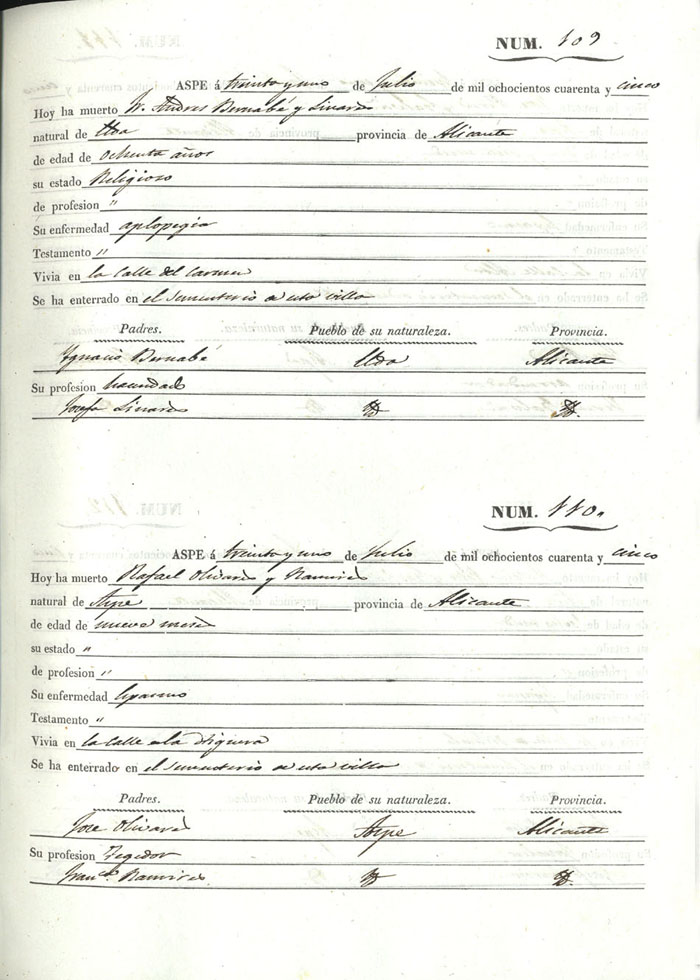 NUM. 109
ASPE á treinta y uno de Julio de mil ochocientos cuarenta y cinco
Hoy ha muerto Dn. Andres Bernabé y Linares
natural de Elda provincia de Alicante
de edad de ochenta años
su estado Religioso
de profesion "
Su enfermedad aplopegia
Testamento "
Vivia en la Calle del Carmen
Se ha enterrado en el Sementerio de esta villa
Padres. Pueblo de su naturaleza. Provincia.
Ygnacio Bernabé Elda Alicante
Su profesion hacendado
Josefa Linares
NUM. 110.
ASPE á treinta y uno de Julio de mil ochocientos cuarenta y cinco
Hoy ha muerto Rafael Olivares y Ramires
natural de Aspe provincia de Alicante
de edad de nueve meses
su estado "
de profesion "
Su enfermedad
Testamento "
Vivia en la Calle de la Higuera
Se ha enterrado en el Sementerio de esta villa
Padres. Pueblo de su naturaleza. Provincia.
Jose Olivares Aspe Alicante
Su profesion Tegedor
Franca. Ramires